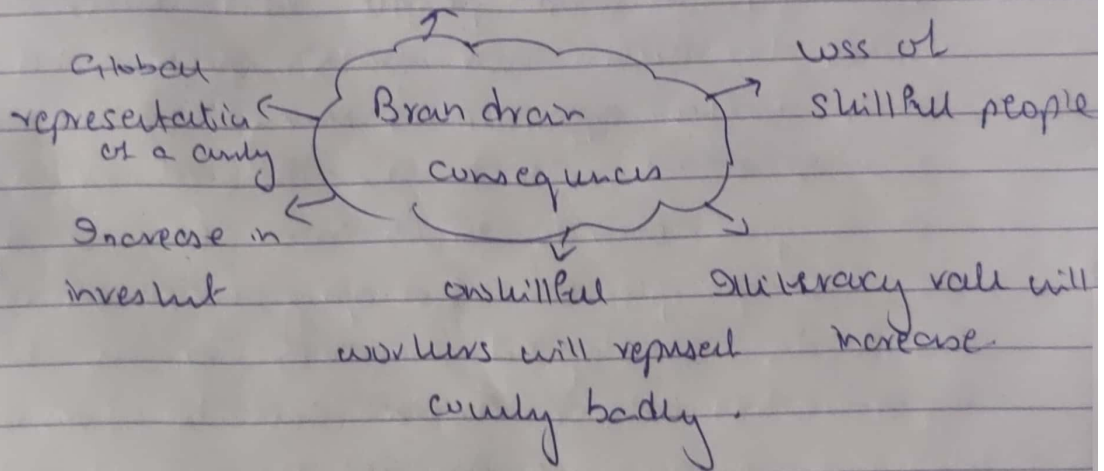 Global
representation
of a country
Brain drain
consequences
loss of
skillful people
Increase in
investment
unskillful
workers will represent
country badly.
Illiteracy rate will
increase.